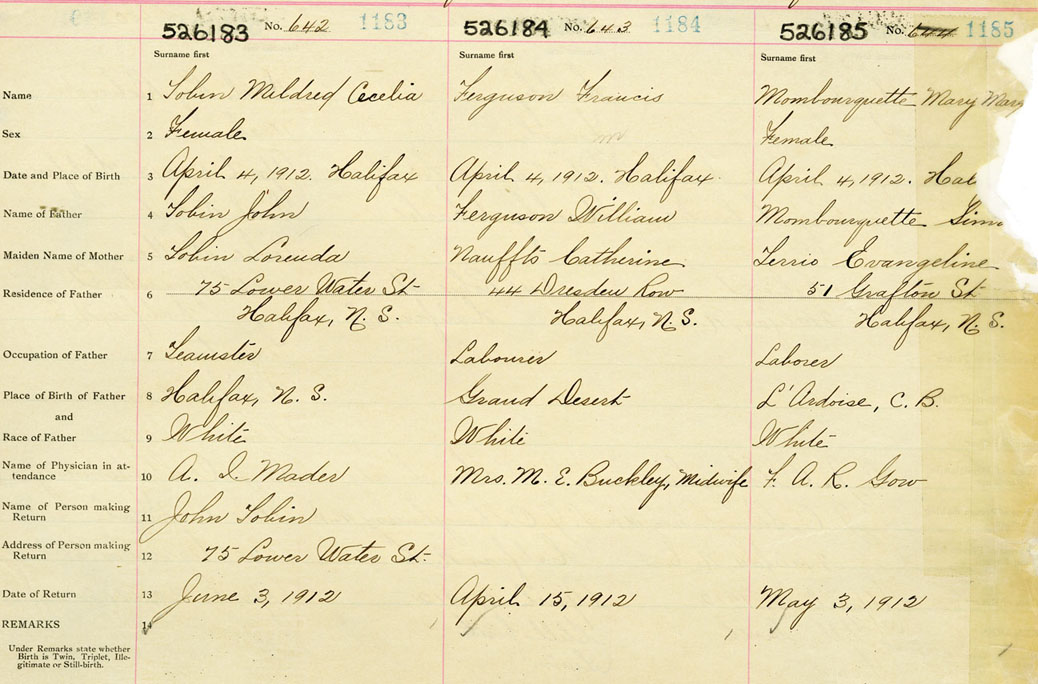 526183 No. 642 1183 526184 No. 643 1184 526185 No. 644 1185
Surname first Surname first Surname first
Name 1 Tobin Mildred Cecelia Ferguson Francis Mombourquette Mary Mary
Sex 2 Female Female
Date and Place of Birth 3 April 4, 1912. Halifax April 4, 1912. Halifax. April 4, 1912. Hal
Name of Father 4 Tobin John Ferguson William Mombourquette Sim
Maiden Name of Mother 5 Tobin Lorenda Nauffts Catherine Terrio Evangeline
Residence of Father 6 75 Lower Water St 44 Dresden Row 51 Grafton St
Halifax, N. S. Halifax, N.S. Halifax, N. S.
Occupation of Father 7 Teamster Labourer Laborer
Place of Birth of Father 8 Halifax, N. S. Grand Desert L'Ardoise, C. B.
and
Race of Father 9 White White White
Name of Physician in at-
tendance 10 A. I. Mader Mrs. M. E. Buckley, Midwife F. A. R. Gow
Name of Person making
Return 11 John Tobin
Address of Person making
Return 12 75 Lower Water St.
Date of Return 13 June 3, 1912 April 15, 1912 May 3, 1912
REMARKS 14
Under Remarks state whether
Birth is Twin, Triplet, Ille-
gitimate or Still-birth.